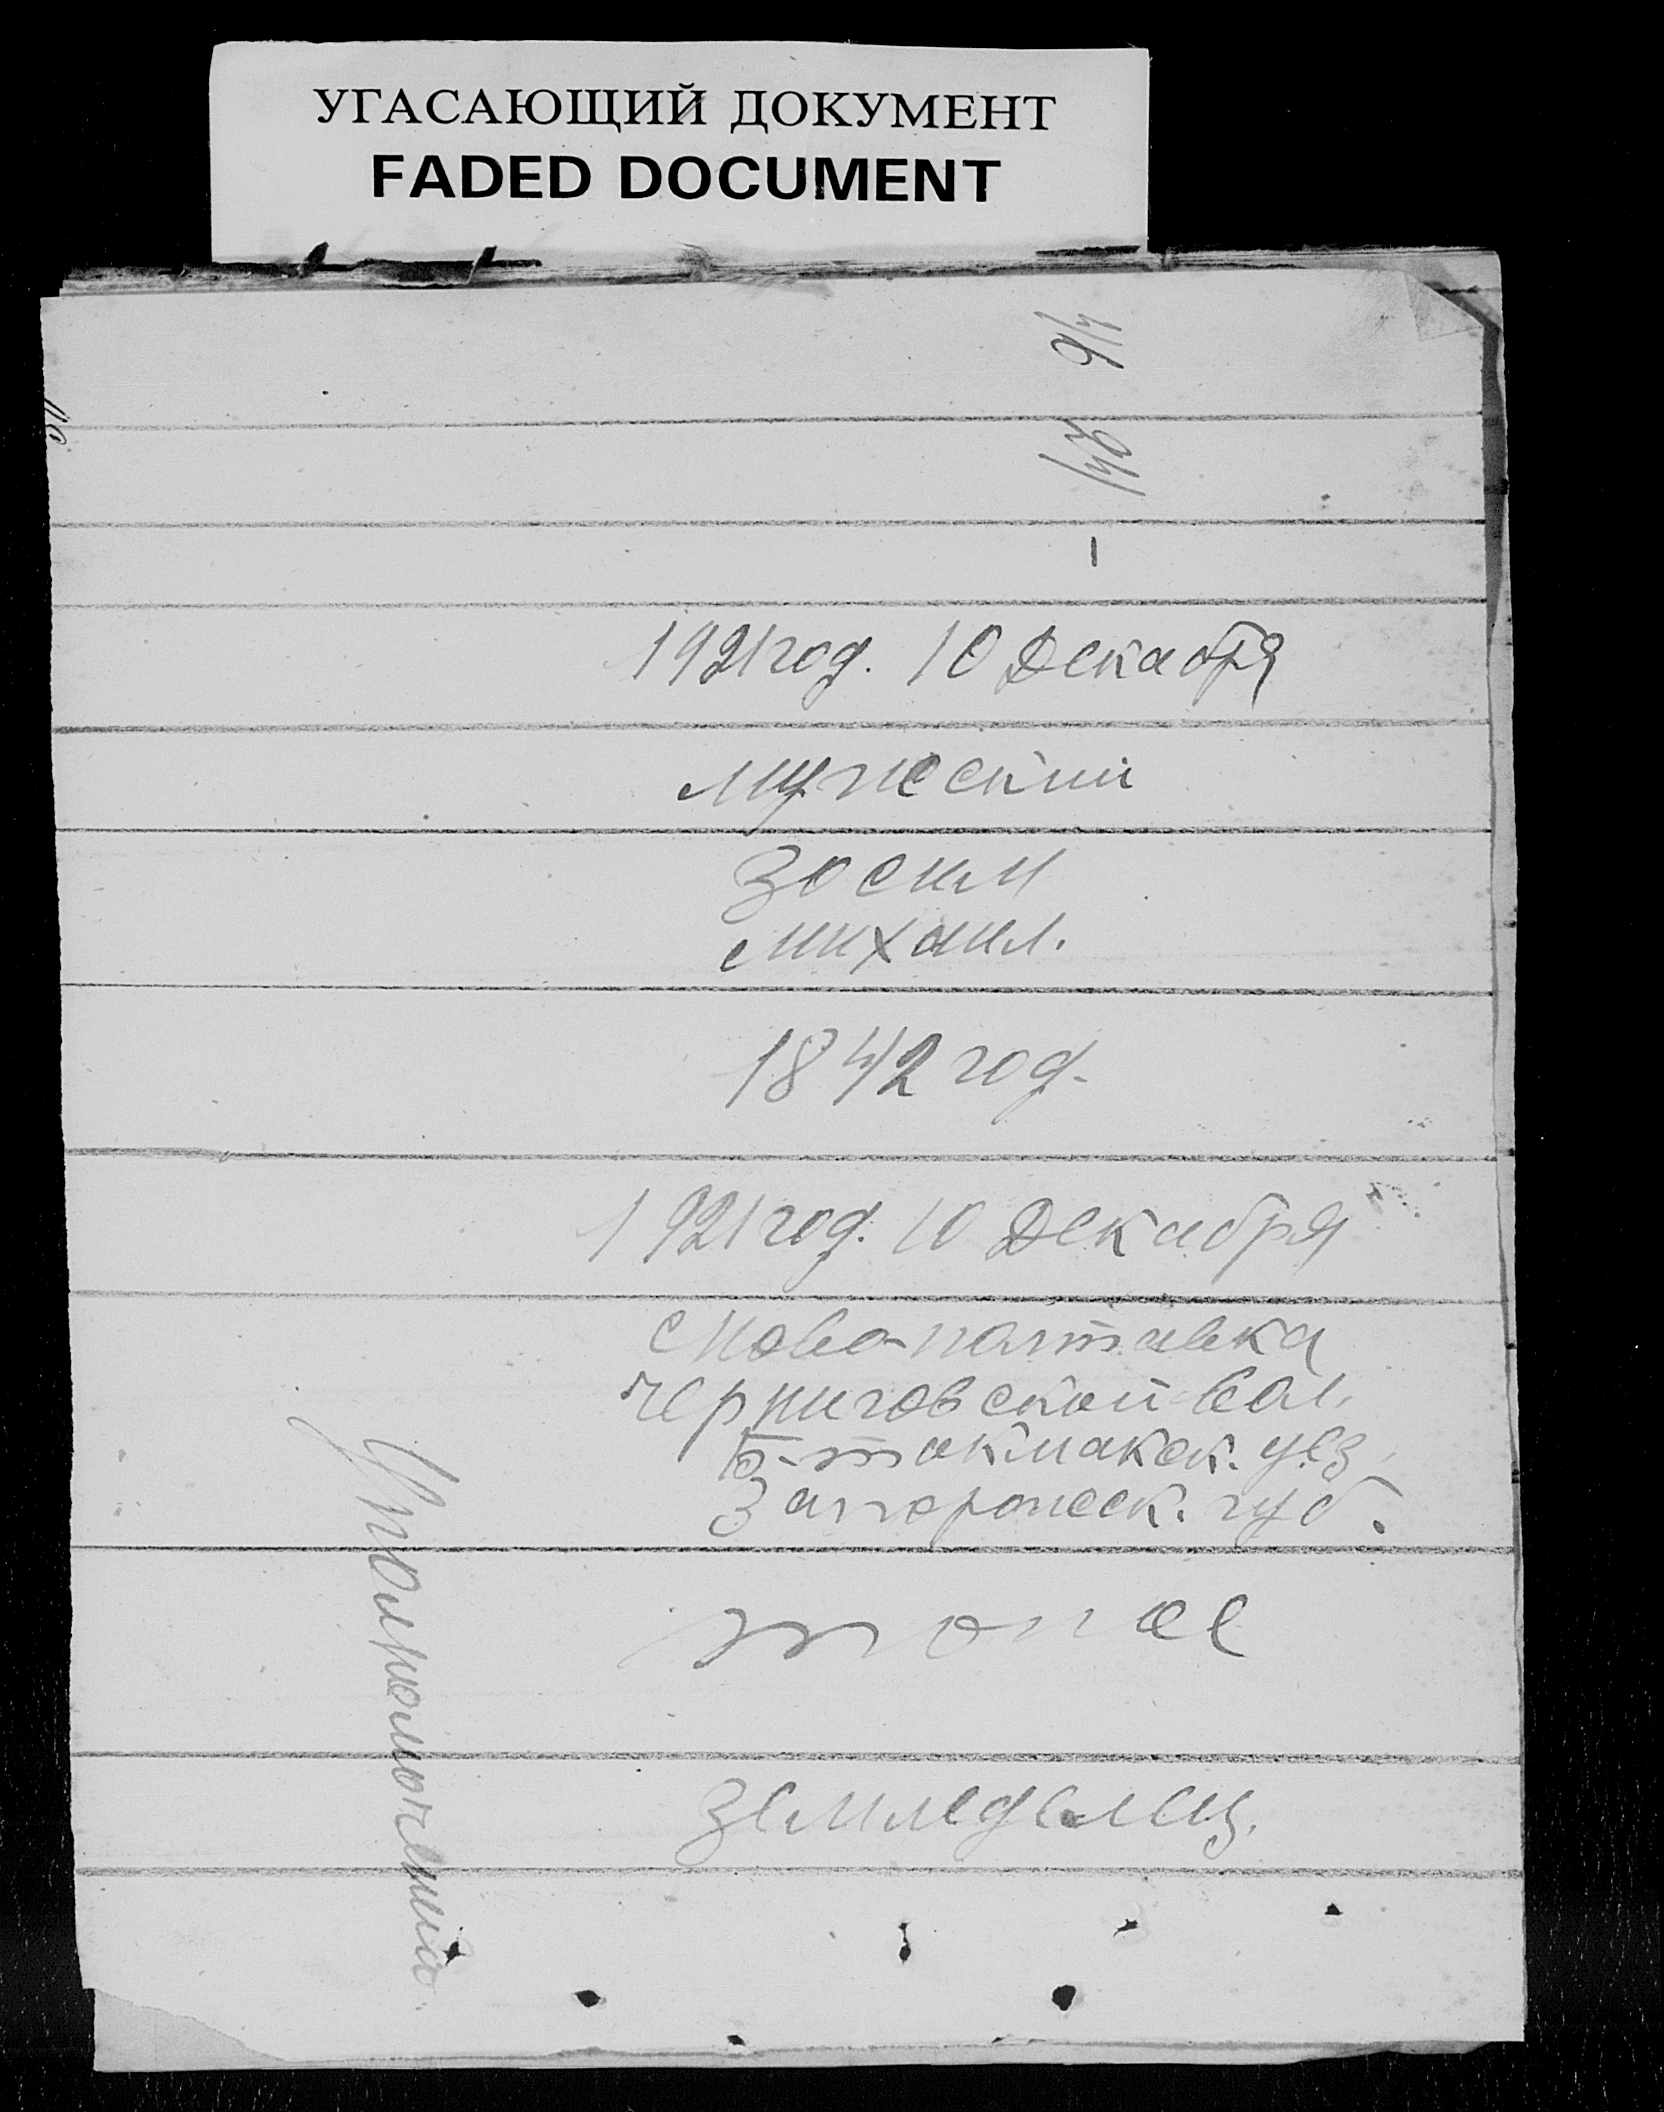 УГАСАЮЩИЙ ДОКУМЕНТ
FADED DOCUMENT
1921 год. 10 Декабря
мужеский
Зосим
Михаил.
1842 год.
1921 год. 10 Декабря
Ново-полтавка
Черниговской вол.
Б-токмакск. уез.
Запорожск. губ.
тоже
Земледелец.